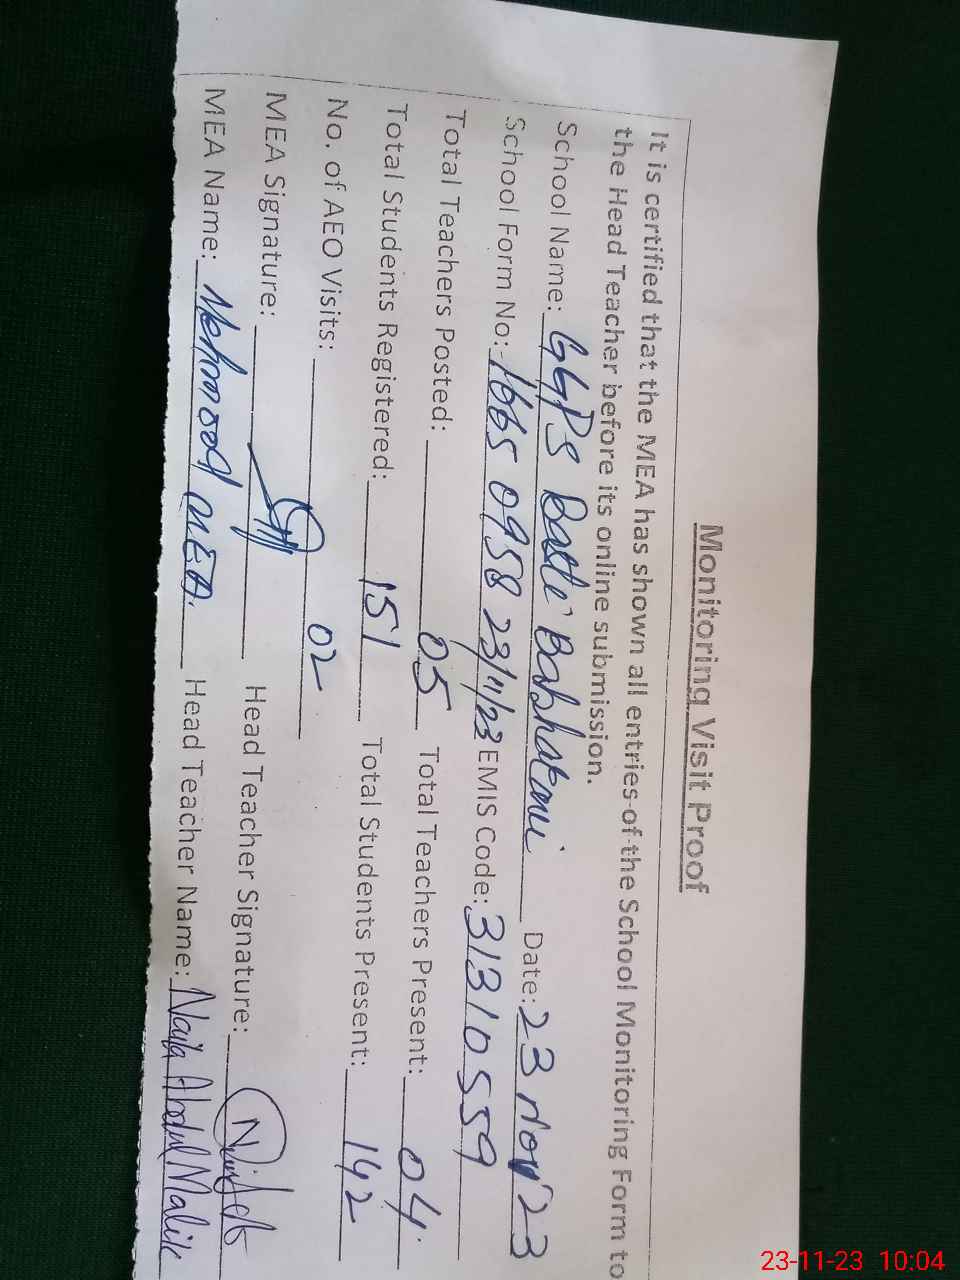 Monitoring Visit Proof
It is certified that the MEA has shown all entries of the School Monitoring Form to
the Head Teacher before its online submission.
School Name: GGPS Basti Date: 23 Nov'23
School Form No: 1665 0958 23/11/23 EMIS Code: 31310559
Total Teachers Posted: 05 Total Teachers Present: 04.
Total Students Registered: 151 Total Students Present: 142
No. of AEO Visits: 02
MEA Signature: Head Teacher Signature:
MEA Name: Mehmood MEA. Head Teacher Name: Naila Abdul Malik
23-11-23 10:04